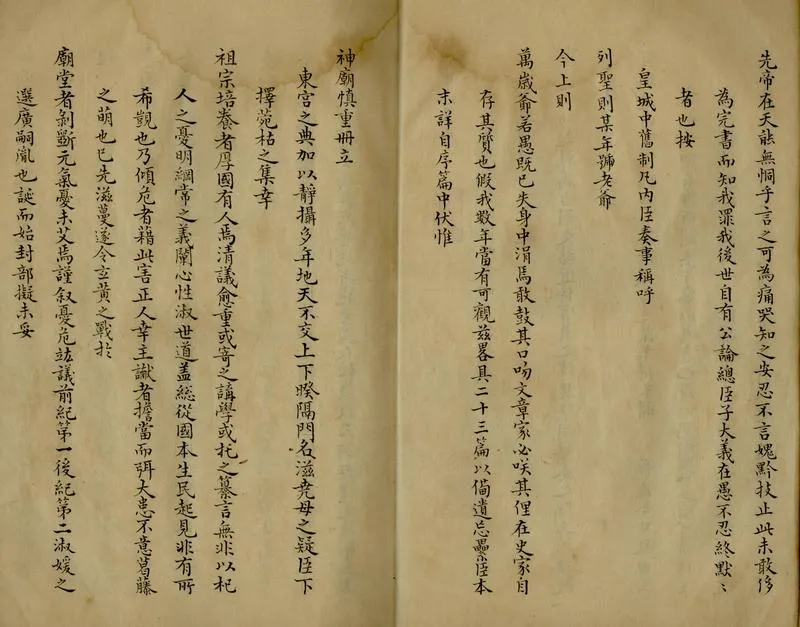 先帝在天能無恫乎言之可為痛哭知之安忍不言媿黔技止此未敢侈
為完書而知我罪我後世自有公論總臣子大義在愚不忍終默〻
者也按
皇城中舊制凡內臣奏事稱呼
列聖則某年號老爺
今上則
萬歲爺若愚既已失身中涓焉敢鼓其口吻文章家必咲其俚在史家自
存其質也假我數年當有可觀茲畧具二十三篇以備遺忘纍臣本
末詳自序篇中伏惟
神廟慎重冊立
東宮之典加以靜攝多年地天不交上下暌隔門名滋堯母之疑臣下
擇菀枯之集幸
祖宗培養者厚國有人焉清議愈重或寄之講學或托之纂言無非以杞
人之憂明綱常之義闡心性淑世道蓋總從國本生民起見非有所
希覬也乃傾危者藉此害正人幸主讞者擔當而弭大患不意葛藤
之萌也已先滋蔓遂令玄黃之戰於
廟堂者剝斷元氣憂未艾焉謹叙憂危竑議前紀第一後紀第二淑媛之
選廣嗣胤也誕而始封部擬未妥